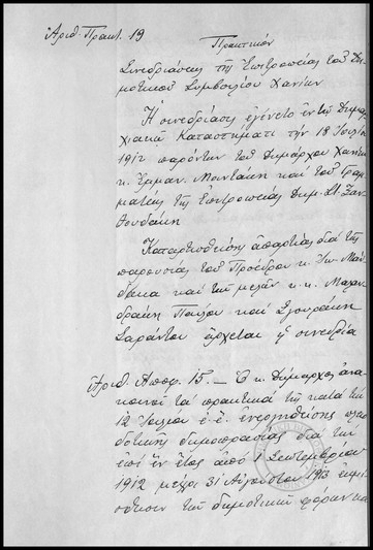 Αριθ. Πρακτ. 19
Πρακτικόν
Συνεδριάσεως της Επιτροπείας του Δη
μοτικού Συμβουλίου Χανίων
Η συνεδρίασις εγένετο εν τω Δημαρ
χιακώ Καταστήματι την 18 Ιουλίου
1912 παρόντων του Δημάρχου Χανίων
κ. Εμμαν. Μουντάκη και του Γραμ
ματέως της Επιτροπείας Δημ. Στ. Ξαν
θουδάκη
Καταρτισθείσης απαρτίας διά της
παρουσίας του Προέδρου κ. Ιω. Μάν
δακα και των μελών κ. κ. Μαλαν
δράκη Παύλου και Σγουράκη
Σαράντου άρχεται η συνεδρία
Αριθ. Αποφ. 15. – Ο κ. Δήμαρχος ανα
κοινοί τα πρακτικά της κατά την
12 Ιουλίου ε.έ. ενεργηθείσης πλειο
δοτικής δημοπρασίας διά την
επί εν έτος από 1 Σεπτεμβρίου
1912 μέχρι 31 Αυγούστου 1913 εκμί
σθωσιν των δημοτικών φόρων και